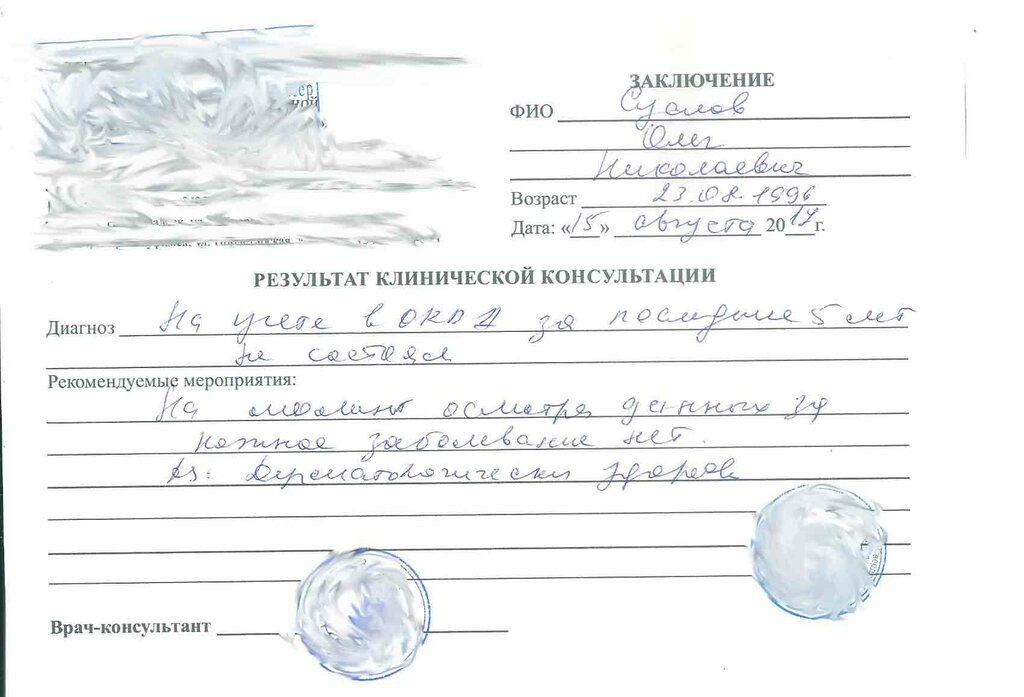 ЗАКЛЮЧЕНИЕ
ФИО Суслов
Олег
Николаевич
Возраст 23.08.1996
Дата: «15» августа 2017г.
РЕЗУЛЬТАТ КЛИНИЧЕСКОЙ КОНСУЛЬТАЦИИ
Диагноз На учете в ОКВД за последние 5 лет
не состоял
Рекомендуемые мероприятия:
На момент осмотра данных за
кожное заболевание нет.
Дз: Дерматологически здоров
Врач-консультант